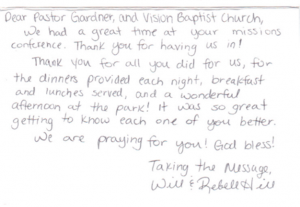 Dear Pastor Gardner, and Vision Baptist Church,
We had a great time at your missions
conference. Thank you for having us in!
Thank you for all you did for us, for
the dinners provided each night, breakfast
and lunches served, and a wonderful
afternoon at the park! It was so great
getting to know each one of you better.
We are praying for you! God bless!
Taking the Message,
Will &